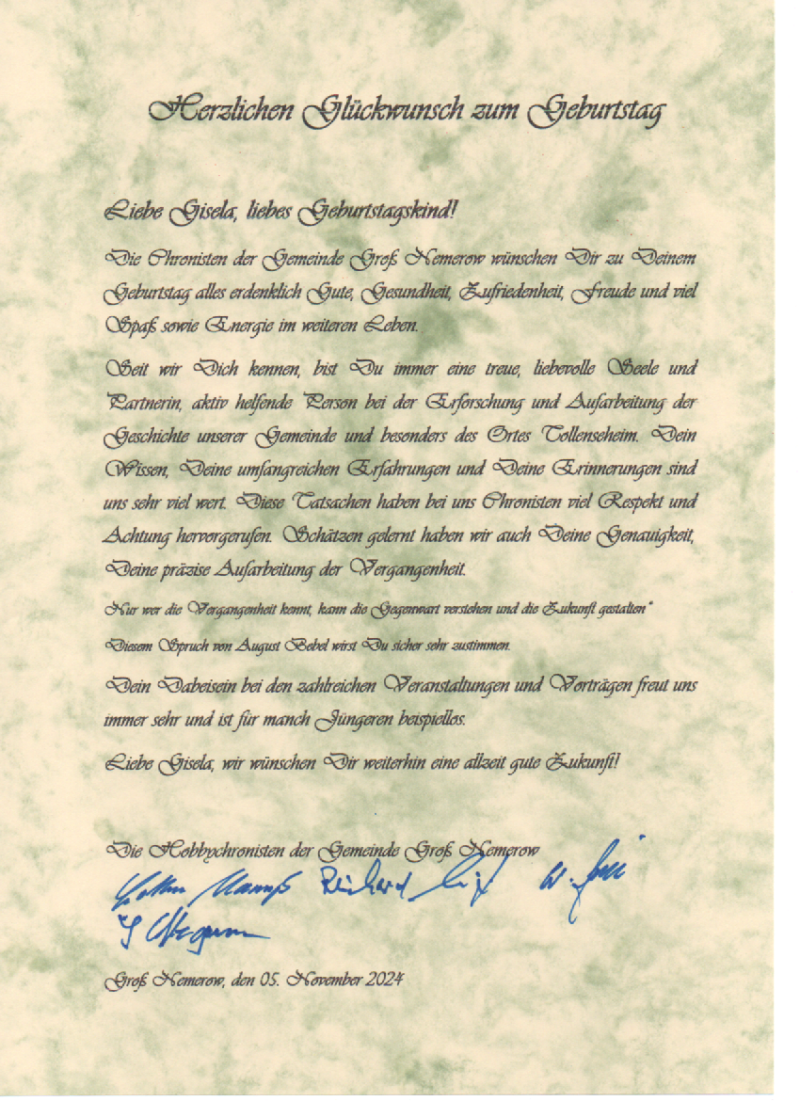 Herzlichen Glückwunsch zum Geburtstag
Liebe Gisela, liebes Geburtstagskind!
Die Chronisten der Gemeinde Groß Nemerow wünschen Dir zu Deinem
Geburtstag alles erdenklich Gute, Gesundheit, Zufriedenheit, Freude und viel
Spaß sowie Energie im weiteren Leben.
Seit wir Dich kennen, bist Du immer eine treue, liebevolle Seele und
Partnerin, aktiv helfende Person bei der Erforschung und Aufarbeitung der
Geschichte unserer Gemeinde und besonders des Ortes Tollenseheim. Dein
Wissen, Deine umfangreichen Erfahrungen und Deine Erinnerungen sind
uns sehr viel wert. Diese Tatsachen haben bei uns Chronisten viel Respekt und
Achtung hervorgerufen. Schätzen gelernt haben wir auch Deine Genauigkeit,
Deine präzise Aufarbeitung der Vergangenheit.
Nur wer die Vergangenheit kennt, kann die Gegenwart verstehen und die Zukunft gestalten"
Diesem Spruch von August Bebel wirst Du sicher sehr zustimmen.
Dein Dabeisein bei den zahlreichen Veranstaltungen und Vorträgen freut uns
immer sehr und ist für manch Jüngeren beispiellos.
Liebe Gisela, wir wünschen Dir weiterhin eine allzeit gute Zukunft!
Die Hobbychronisten der Gemeinde Groß Nemerow
Reinhard
Groß Nemerow, den 05. November 2024